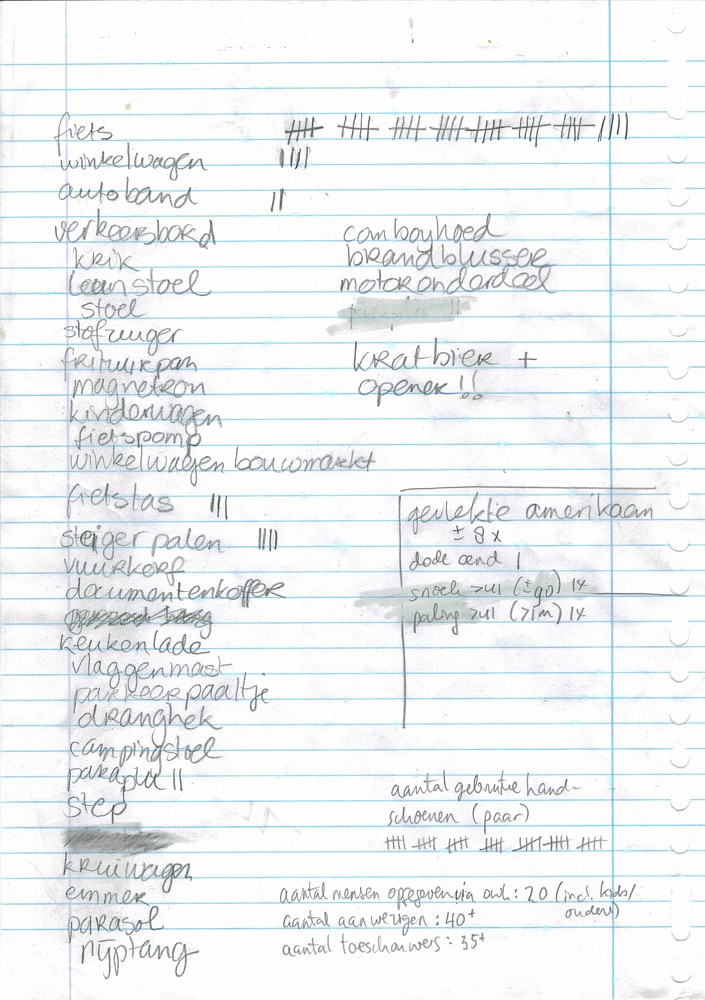 fiets 𝍸 𝍸 𝍸 𝍸 𝍸 𝍸 𝍸 ||||
winkelwagen ||||
autoband ||
verkeersbord
krik
leunstoel
stoel
stofzuiger
frituurpan
magnetron
kinderwagen
fietspomp
winkelwagen bouwmarkt
fietstas |||
steigerpalen ||||
vuurkorf
documentenkoffer
keukenlade
vlaggenmast
parkeerpaaltje
dranghek
campingstoel
paraplu ||
step
kruiwagen
emmer
parasol
nijptang
comboyhoed
brandblusser
motoronderdeel
krat bier +
opener!!
gevlekte amerikaan
± 8 x
dode eend |
snoek >41 (±90) 1x
paling >41 (>1m) 1x
aantal gebruikte hand-
schoenen (paar)
𝍸 𝍸 𝍸 𝍸 𝍸 𝍸 𝍸
aantal mensen opgegeven via owh: 20 (incl. kids/
ouders)
aantal aanwezigen: 40+
aantal toeschouwers: 35+